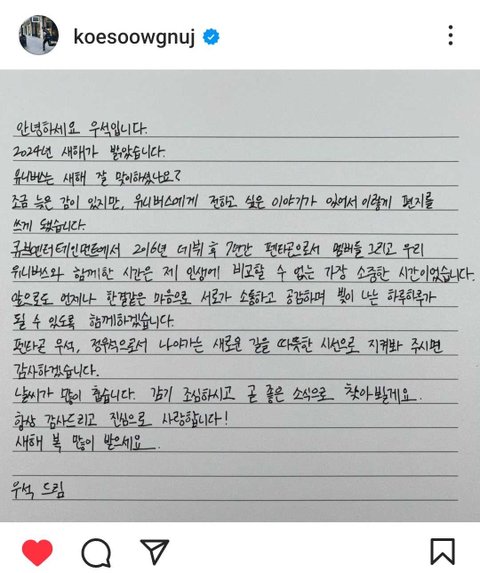 koesoowgnuj
안녕하세요 우석입니다.
2024년 새해가 밝았습니다.
유니버스는 새해 잘 맞이하셨나요?
조금 늦은 감이 있지만, 유니버스에게 전하고 싶은 이야기가 있어서 이렇게 편지를
쓰게 됐습니다.
큐브엔터테인먼트에서 2016년 데뷔 후 7년간 펜타곤으로서 멤버들 그리고 우리
유니버스와 함께한 시간은 제 인생에 비교할 수 없는 가장 소중한 시간이었습니다.
앞으로도 언제나 한결같은 마음으로 서로가 소통하고 공감하며 빛이 나는 하루하루가
될 수 있도록 함께하겠습니다.
펜타곤 우석, 정우석으로서 나아가는 새로운 길을 따뜻한 시선으로 지켜봐 주시면
감사하겠습니다.
날씨가 많이 춥습니다. 감기 조심하시고 곧 좋은 소식으로 찾아뵐게요.
항상 감사드리고 진심으로 사랑합니다!
새해 복 많이 받으세요.
우석 드림